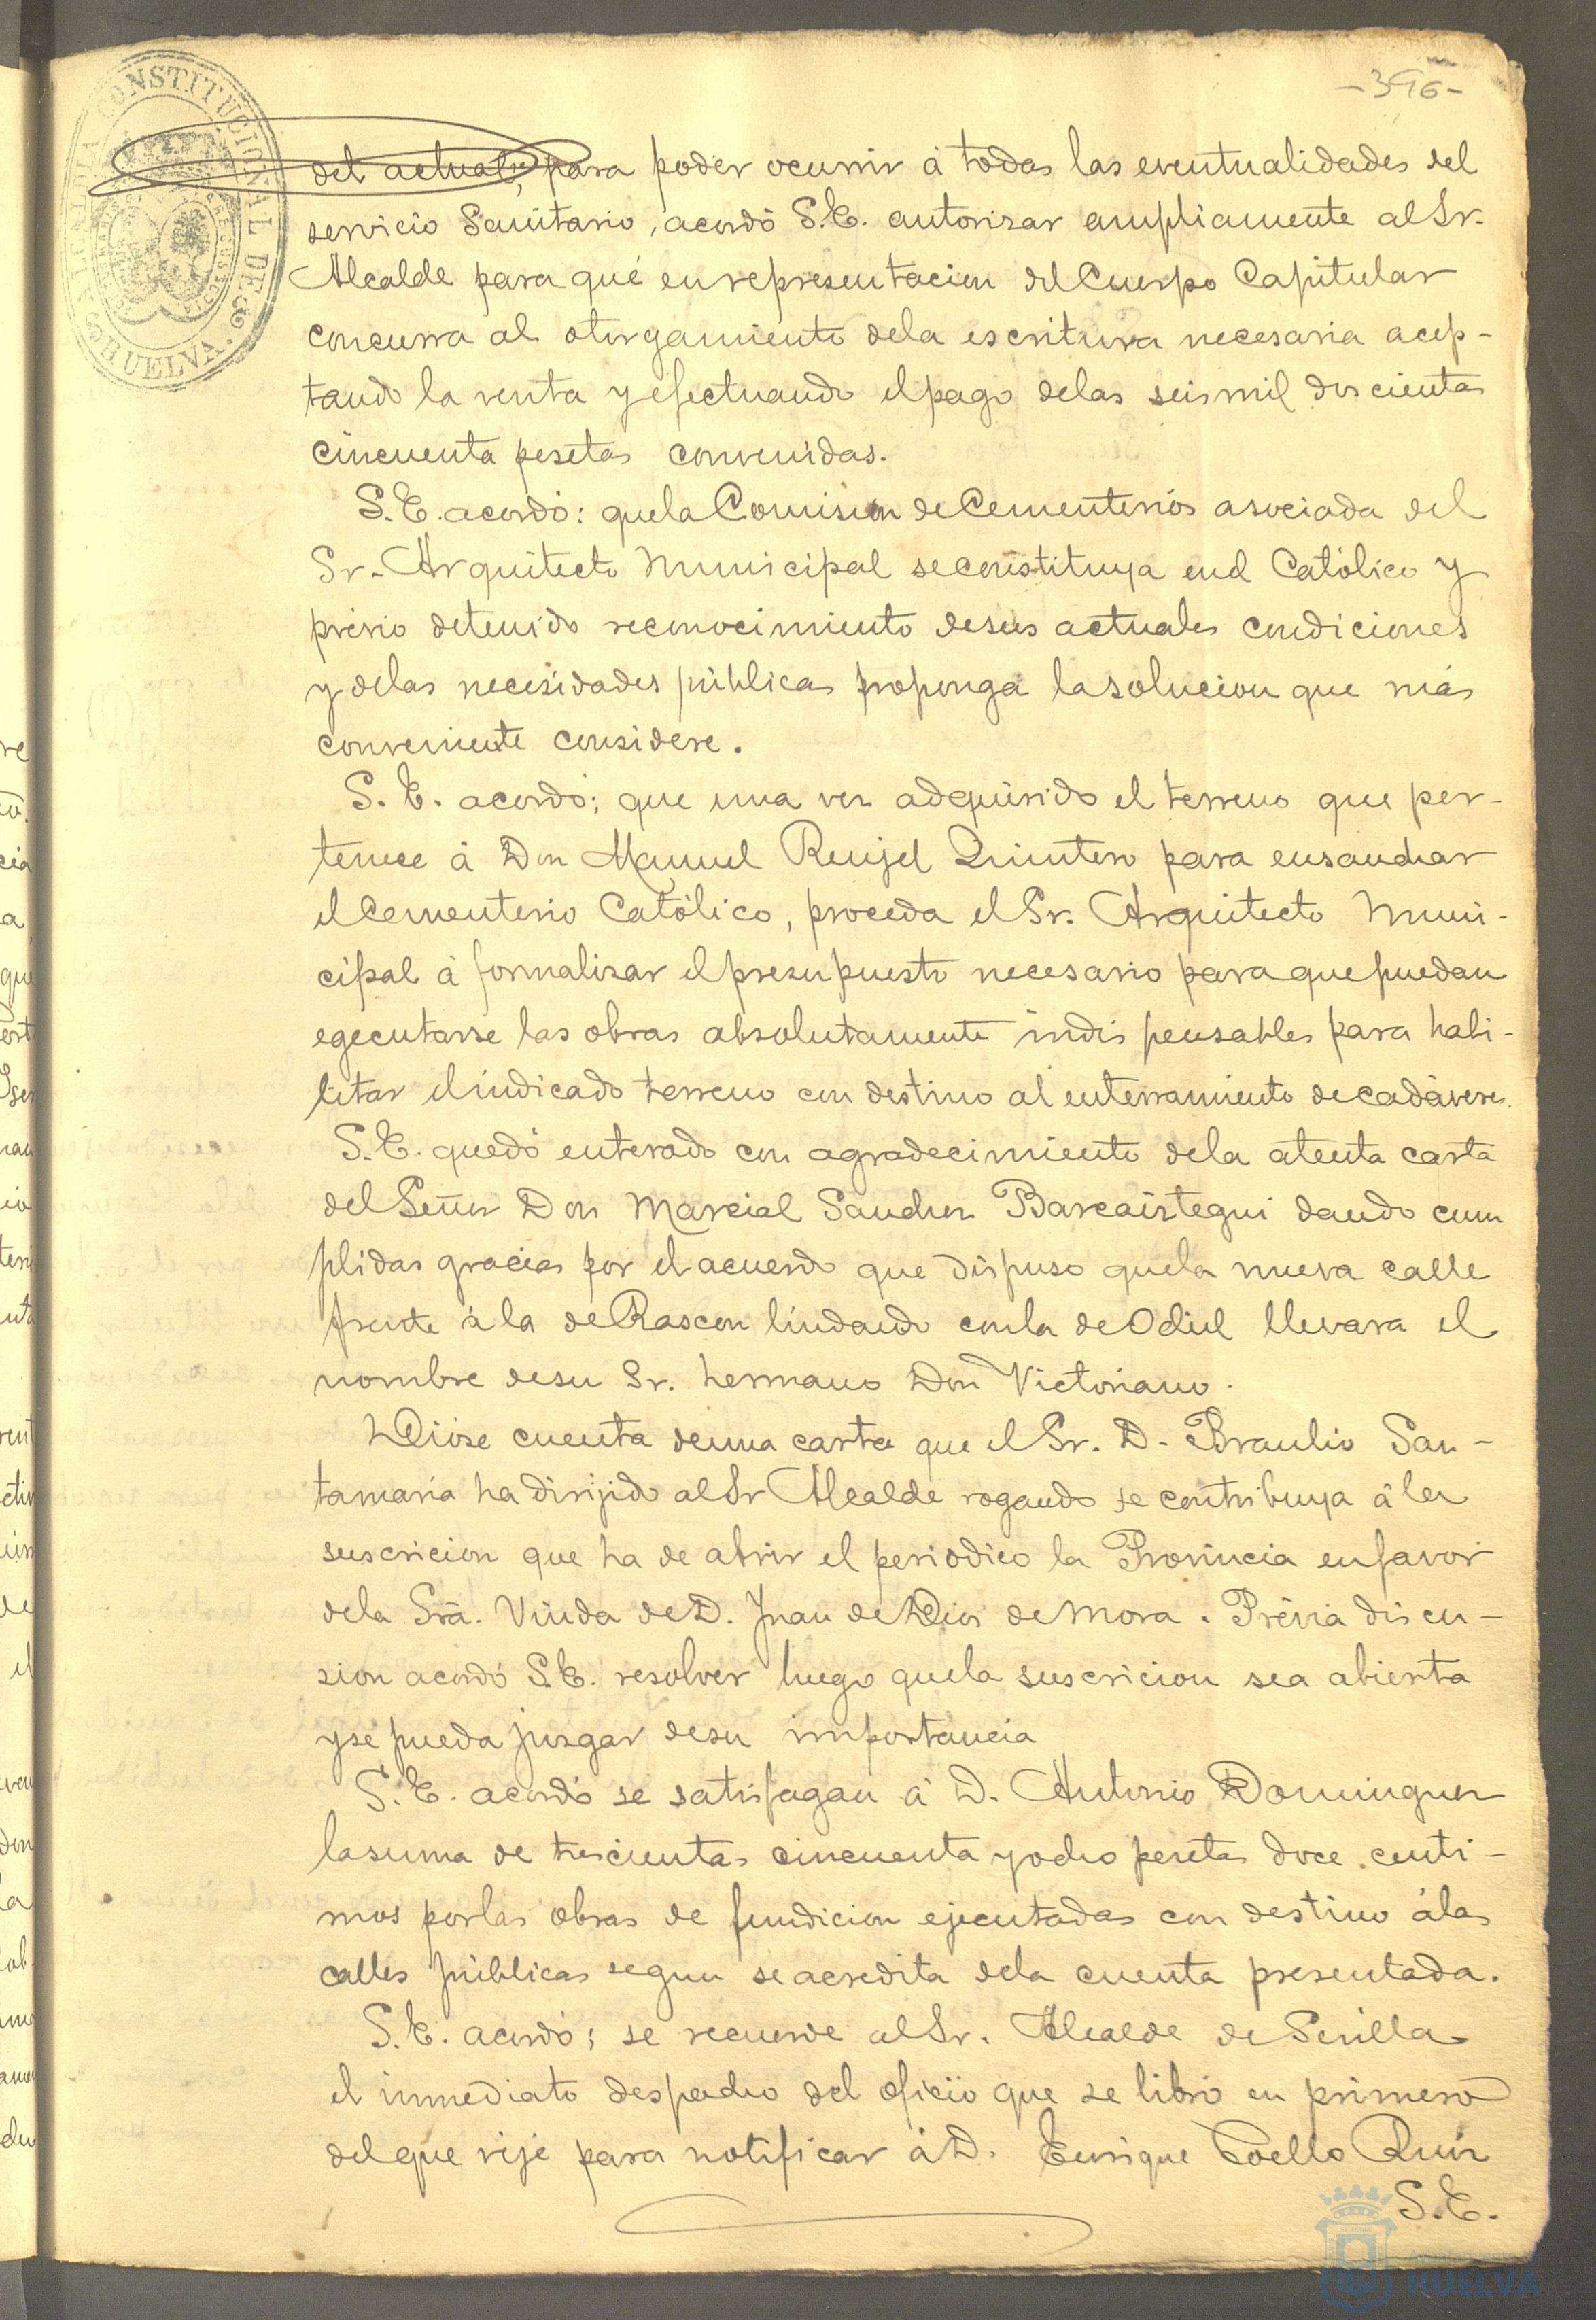 -396-
ALCALDIA CONSTITUCIONAL DE HUELVA.
del actual, para poder ocurrir á todas las eventualidades del
servicio Sanitario, acordó S.E. autorisar ampliamente al Sr.
Alcalde para qué en representacion del Cuerpo Capitular
concurra al otorgamiento dela escritura necesaria acep-
tando la venta y efectuando el pago delas seis mil doscientas
cincuenta pesetas convenidas.
S.E. acordó: que la Comision de Cementerios asociada del
Sr. Arquitecto Municipal se constituya en el Católico y
prévio detenido reconocimiento desus actuales condiciones
y delas necesidades públicas proponga la solucion que más
conveniente considere.
S. E. acordó; que una vez adquirido el terreno que per-
tenece á Don Manuel Rengel Quintero para ensanchar
el Cementerio Católico, proceda el Sr. Arquitecto Muni-
cipal á formalisar el presupuesto necesario para que puedan
egecutarse las obras absolutamente indispensables para habi-
litar el indicado terreno con destino al enterramiento de cadáveres.
S.E. quedó enterado con agradecimiento dela atenta carta
del Señor Don Marcial Sanchez Barcaiztegui dando cum
plidas gracias por el acuerdo que dispuso que la nueva calle
frente á la de Rascon lindando con la de Odiel llevara el
nombre desu Sr. hermano Don Victoriano.
Dióse cuenta deuna carta que el Sr. D. Braulio San-
tamaria ha dirijido al Sr Alcalde rogando se contribuya á la
suscricion que ha de abrir el periodico la Provincia en favor
dela Sra. Viuda de D. Juan de Dios de Mora. Prévia discu-
sion acordó S.E. resolver luego que la suscricion sea abierta
y se pueda jusgar desu importancia
S. E. acordó se satisfagan á D. Antonio Dominguez
la suma de trescientas cincuenta y ocho pesetas doce centi-
mos por las obras de fundicion ejecutadas con destino á las
calles públicas segun se acredita dela cuenta presentada.
S.E. acordó; se recuerde al Sr. Alcalde de Sevilla
el inmediato despacho del oficio que se libró en primero
del que rije para notificar á D. Enrique Coello Ruiz
S.E.
HUELVA